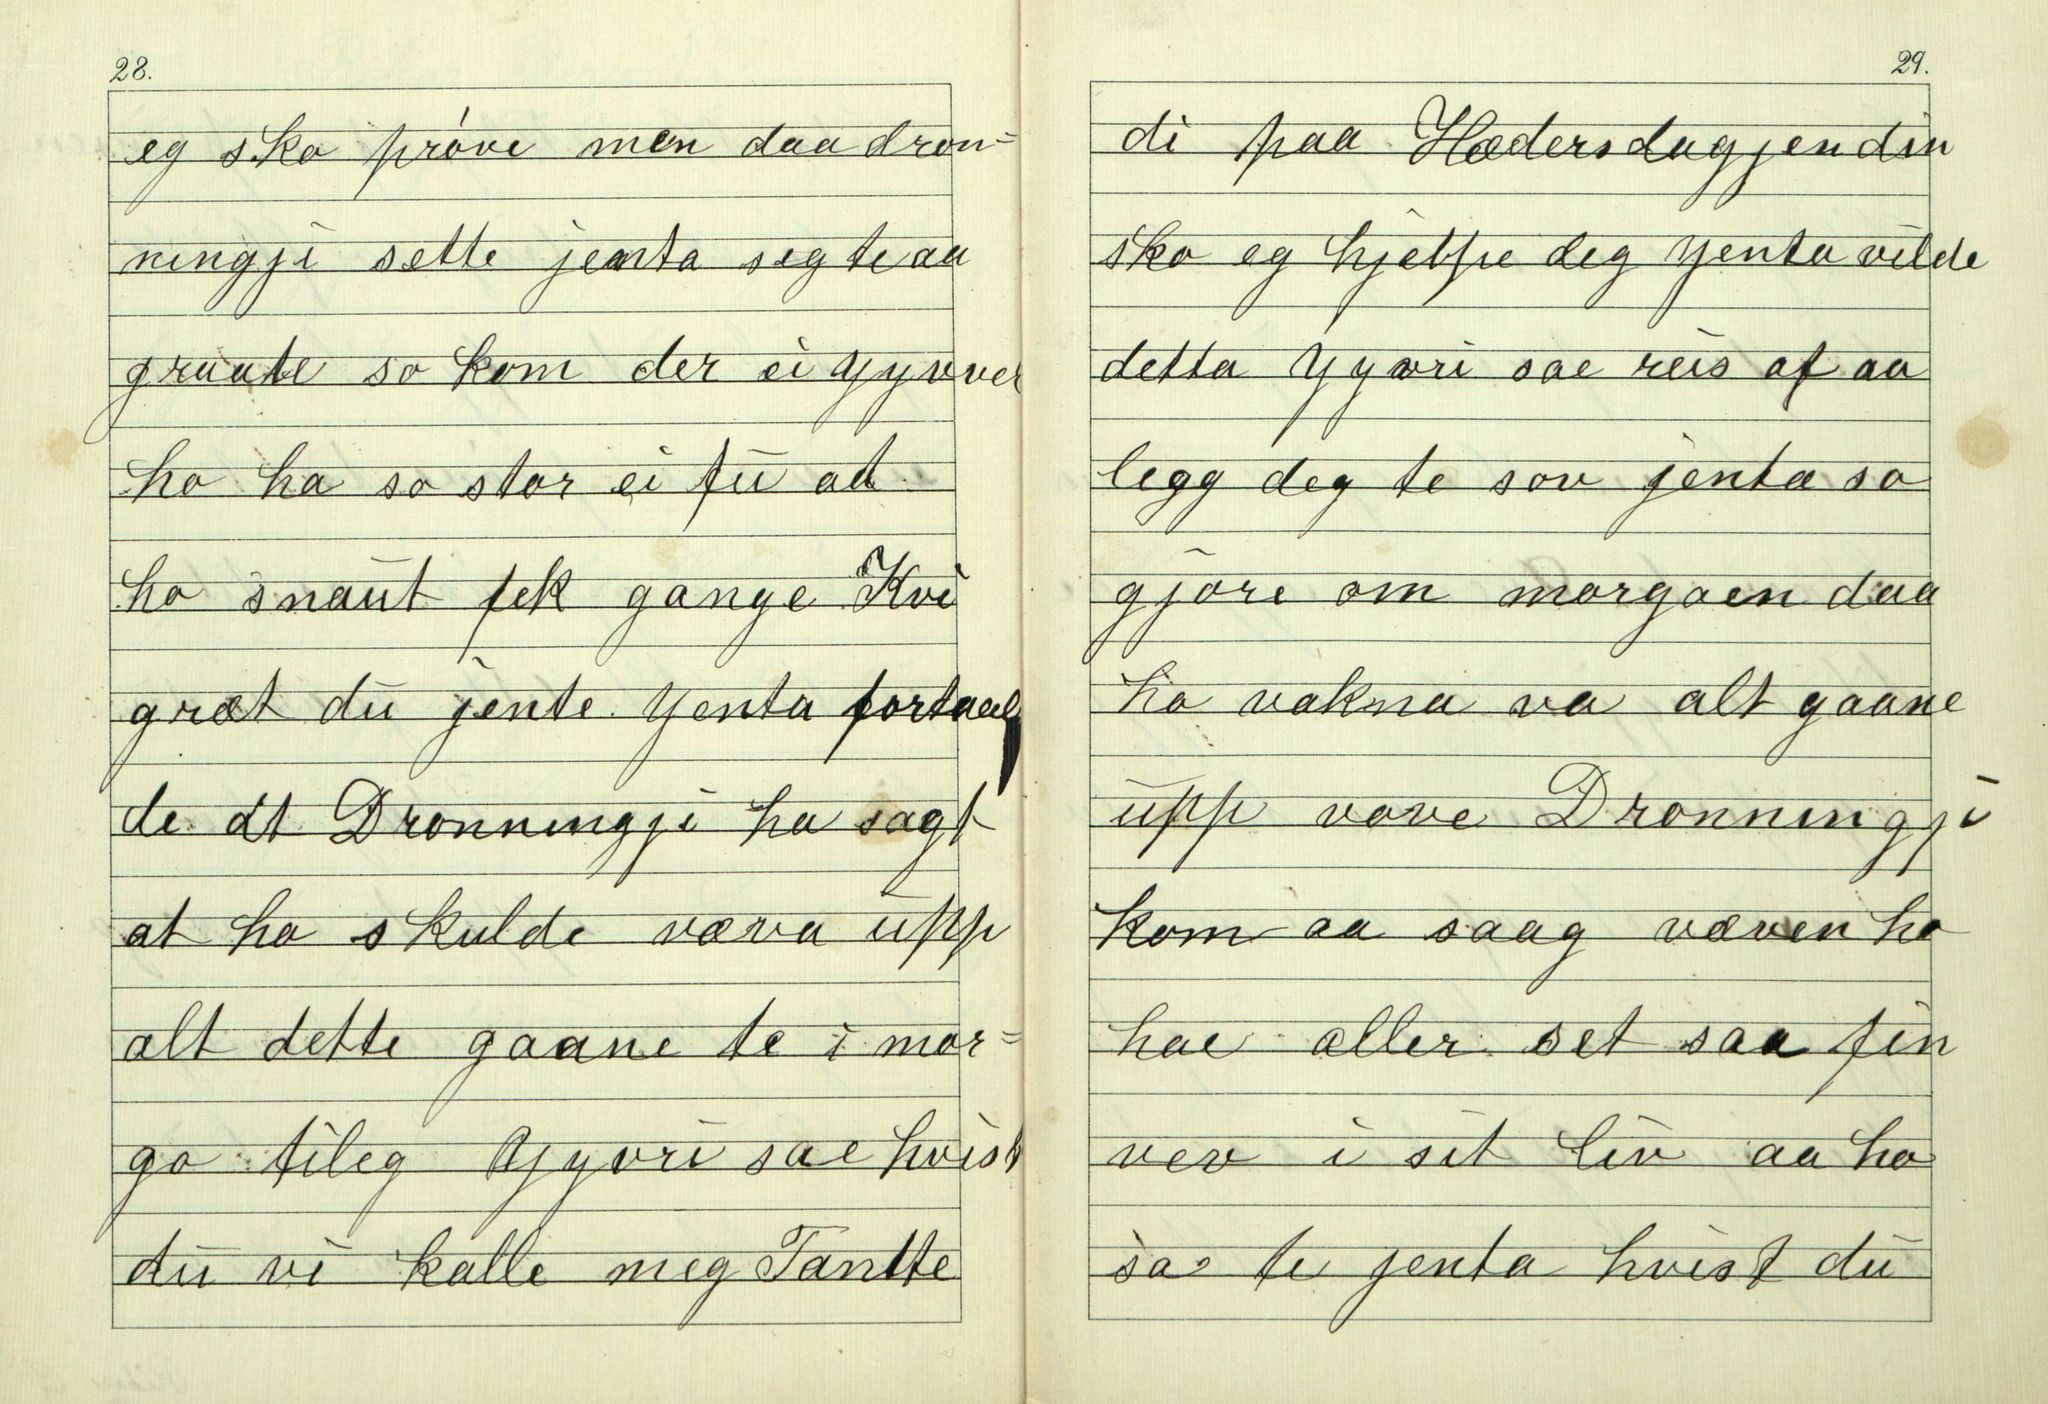 28.
eg sko prøve men daa dron=
ningji sette jenta seg te aa
graate so kom der ei Gyvver
ho ha so stor ei fŭ at
ho snaŭt fek gange Kvi
græt dŭ jente. Jenta fortaal
de at Dronningji ha sagt
at ho skulde væva ŭpp
alt dette gaane te i mor=
go tileg Gyvri sae hvist
dŭ vi kalle meg Tantte
29.
di paa Hædersdagjen din
sko eg hjelpe deg Jenta vilde
detta Gyvri sae reis af aa
legg deg te sov jenta so
gjore om morgoen daa
ho vakna va alt gaane
ŭpp vove Dronningji
kom aa saag væven ho
hae aller set saa fin
vev i sit liv aa ho
sa te jenta hvist dŭ